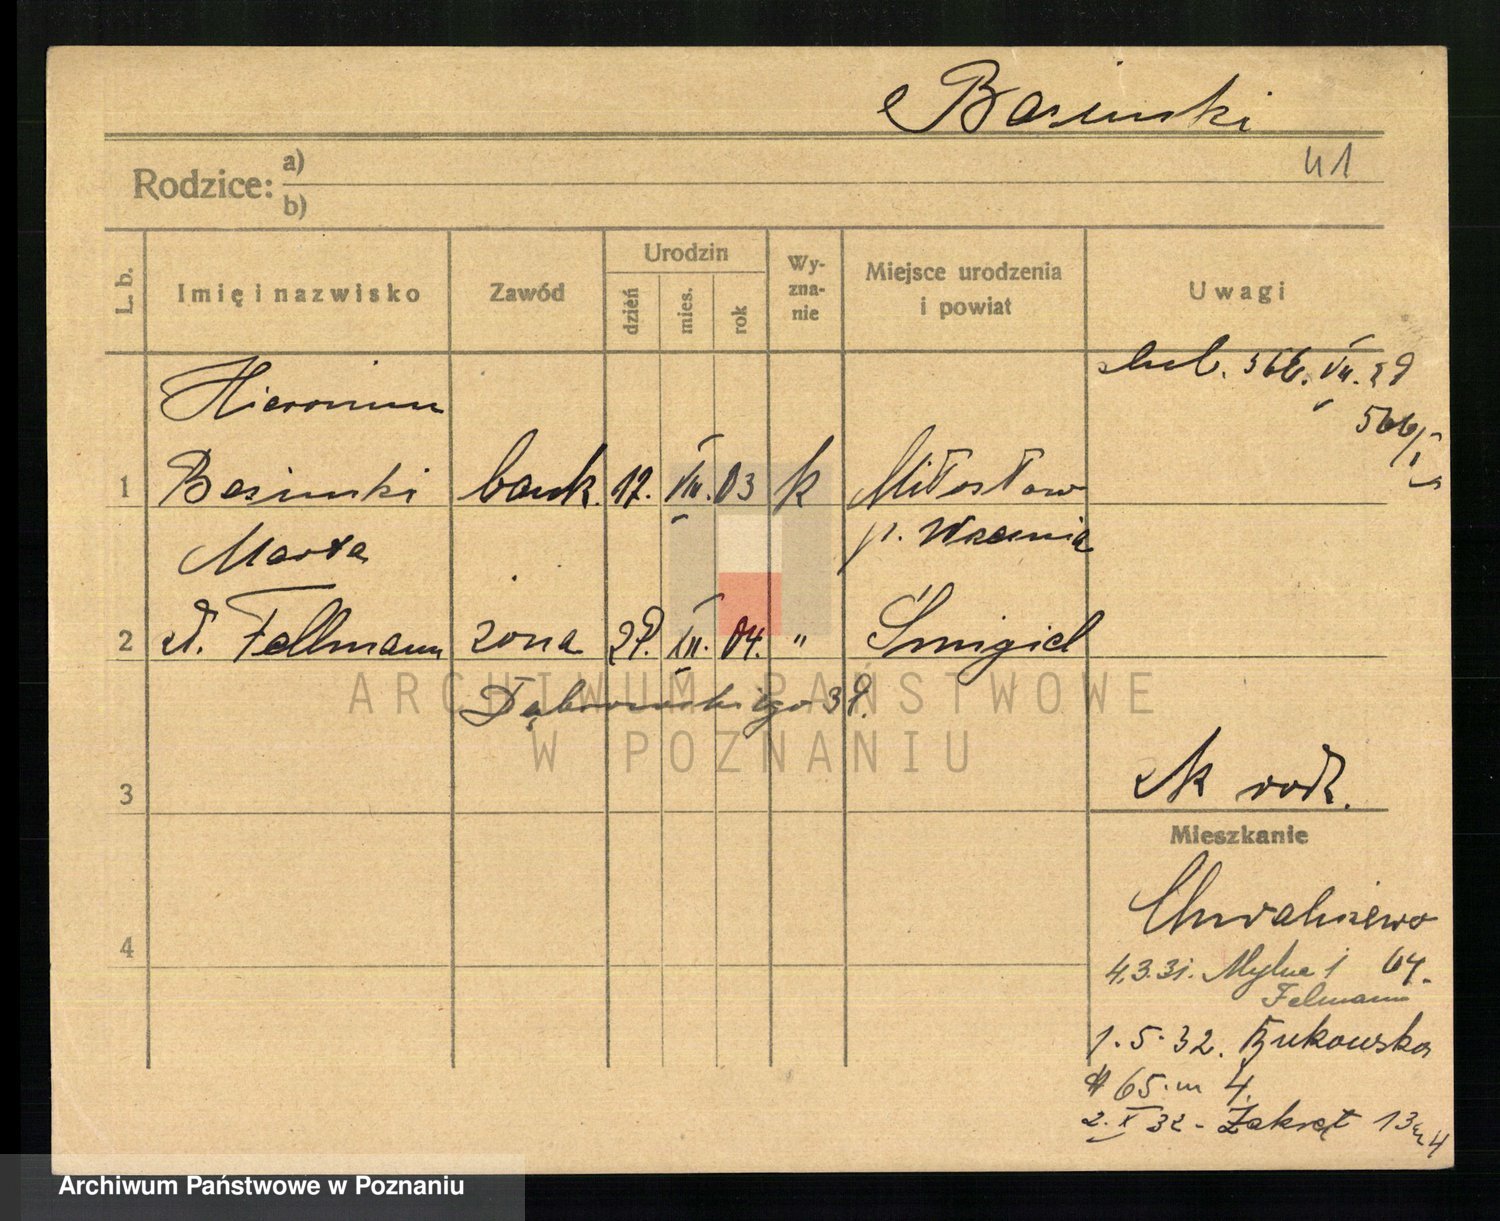 Basinski
41
Rodzice: a)
b)
L. b.
Imię i nazwisko
Zawód
Urodzin
dzień
mies.
rok
Wy-
zna-
nie
Miejsce urodzenia
i powiat
Uwagi
Hieronim
1 Basinski bank. 17. VII. 03 k Miłosław
p. Września
Marta
2 Fellmann żona 29. XII. 04. " Śmigiel
Dąbrowskiego 39.
3
rodz.
Mieszkanie
Chwaliszewo
64.
4
4.3.31. Mylna 1
Felmann
1.5.32. Bukowska
65. m 4.
2. X 32 - Zakręt 13 m 4
ARCHIWUM PAŃSTWOWE
W POZNANIU
Archiwum Państwowe w Poznaniu